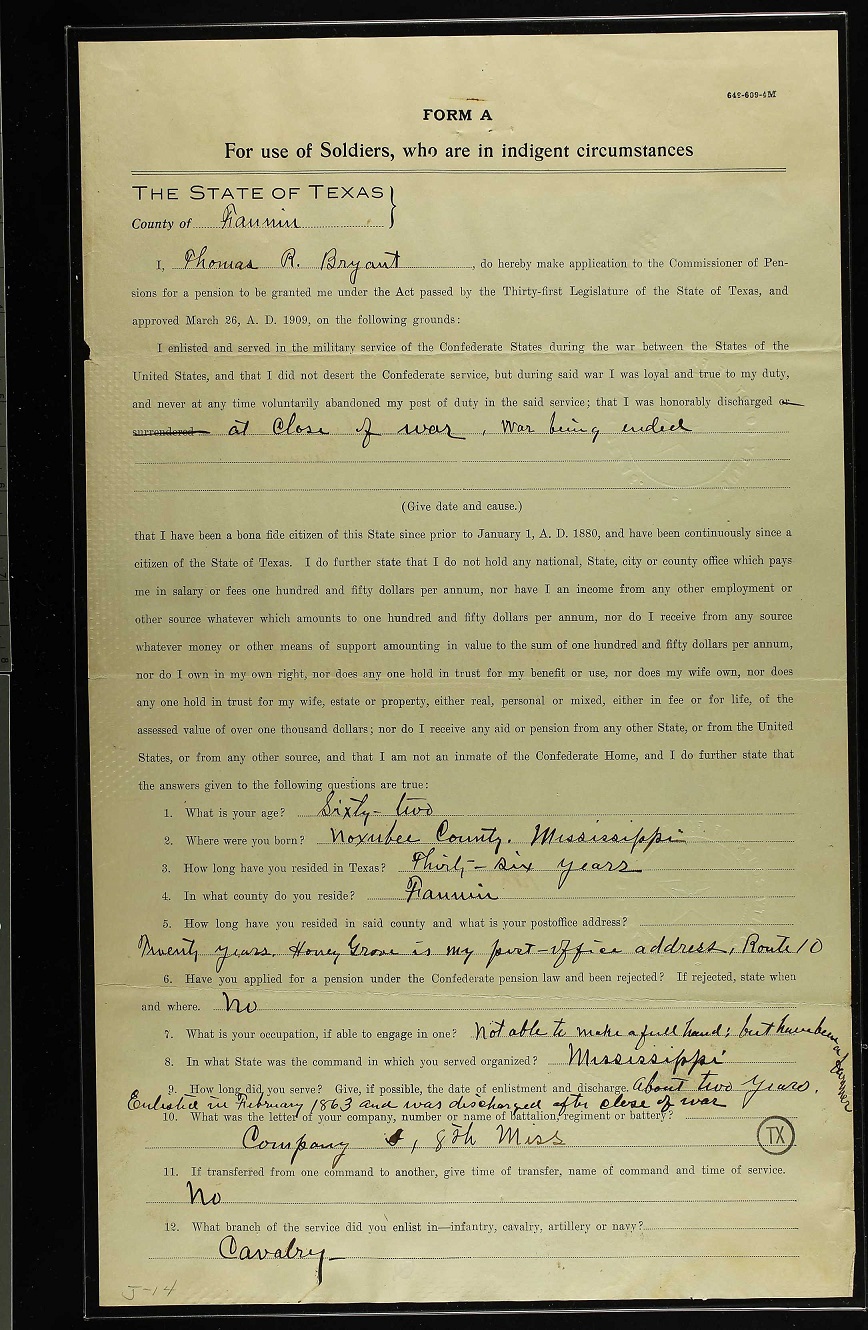 642-609-4M
FORM A
For use of Soldiers, who are in indigent circumstances
THE STATE OF TEXAS
County of Fannin
I, Thomas R. Bryant, do hereby make application to the Commissioner of Pen-
sions for a pension to be granted me under the Act passed by the Thirty-first Legislature of the State of Texas, and
approved March 26, A. D. 1909, on the following grounds:
I enlisted and served in the military service of the Confederate States during the war between the States of the
United States, and that I did not desert the Confederate service, but during said war I was loyal and true to my duty,
and never at any time voluntarily abandoned my post of duty in the said service; that I was honorably discharged or
surrendered at close of war, War being ended
(Give date and cause.)
that I have been a bona fide citizen of this State since prior to January 1, A. D. 1880, and have been continuously since a
citizen of the State of Texas. I do further state that I do not hold any national, State, city or county office which pays
me in salary or fees one hundred and fifty dollars per annum, nor have I an income from any other employment or
other source whatever which amounts to one hundred and fifty dollars per annum, nor do I receive from any source
whatever money or other means of support amounting in value to the sum of one hundred and fifty dollars per annum,
nor do I own in my own right, nor does any one hold in trust for my benefit or use, nor does my wife own, nor does
any one hold in trust for my wife, estate or property, either real, personal or mixed, either in fee or for life, of the
assessed value of over one thousand dollars; nor do I receive any aid or pension from any other State, or from the United
States, or from any other source, and that I am not an inmate of the Confederate Home, and I do further state that
the answers given to the following questions are true:
1. What is your age? Sixty-two
2. Where were you born? Noxubee County. Mississippi
3. How long have you resided in Texas? Thirty-six years
4. In what county do you reside? Fannin
5. How long have you resided in said county and what is your postoffice address?
Twenty years. Honey Grove is my post-office address, Route 10
6. Have you applied for a pension under the Confederate pension law and been rejected? If rejected, state when
and where. No
7. What is your occupation, if able to engage in one? Not able to make a full hand; but have been a farmer
8. In what State was the command in which you served organized? Mississippi
9. How long did you serve? Give, if possible, the date of enlistment and discharge. About two years.
Enlisted in February 1863 and was discharged after close of war
10. What was the letter of your company, number or name of battalion, regiment or battery?
Company , 8th Miss
TX
11. If transferred from one command to another, give time of transfer, name of command and time of service.
No
12. What branch of the service did you enlist in—infantry, cavalry, artillery or navy?
Cavalry
J-14